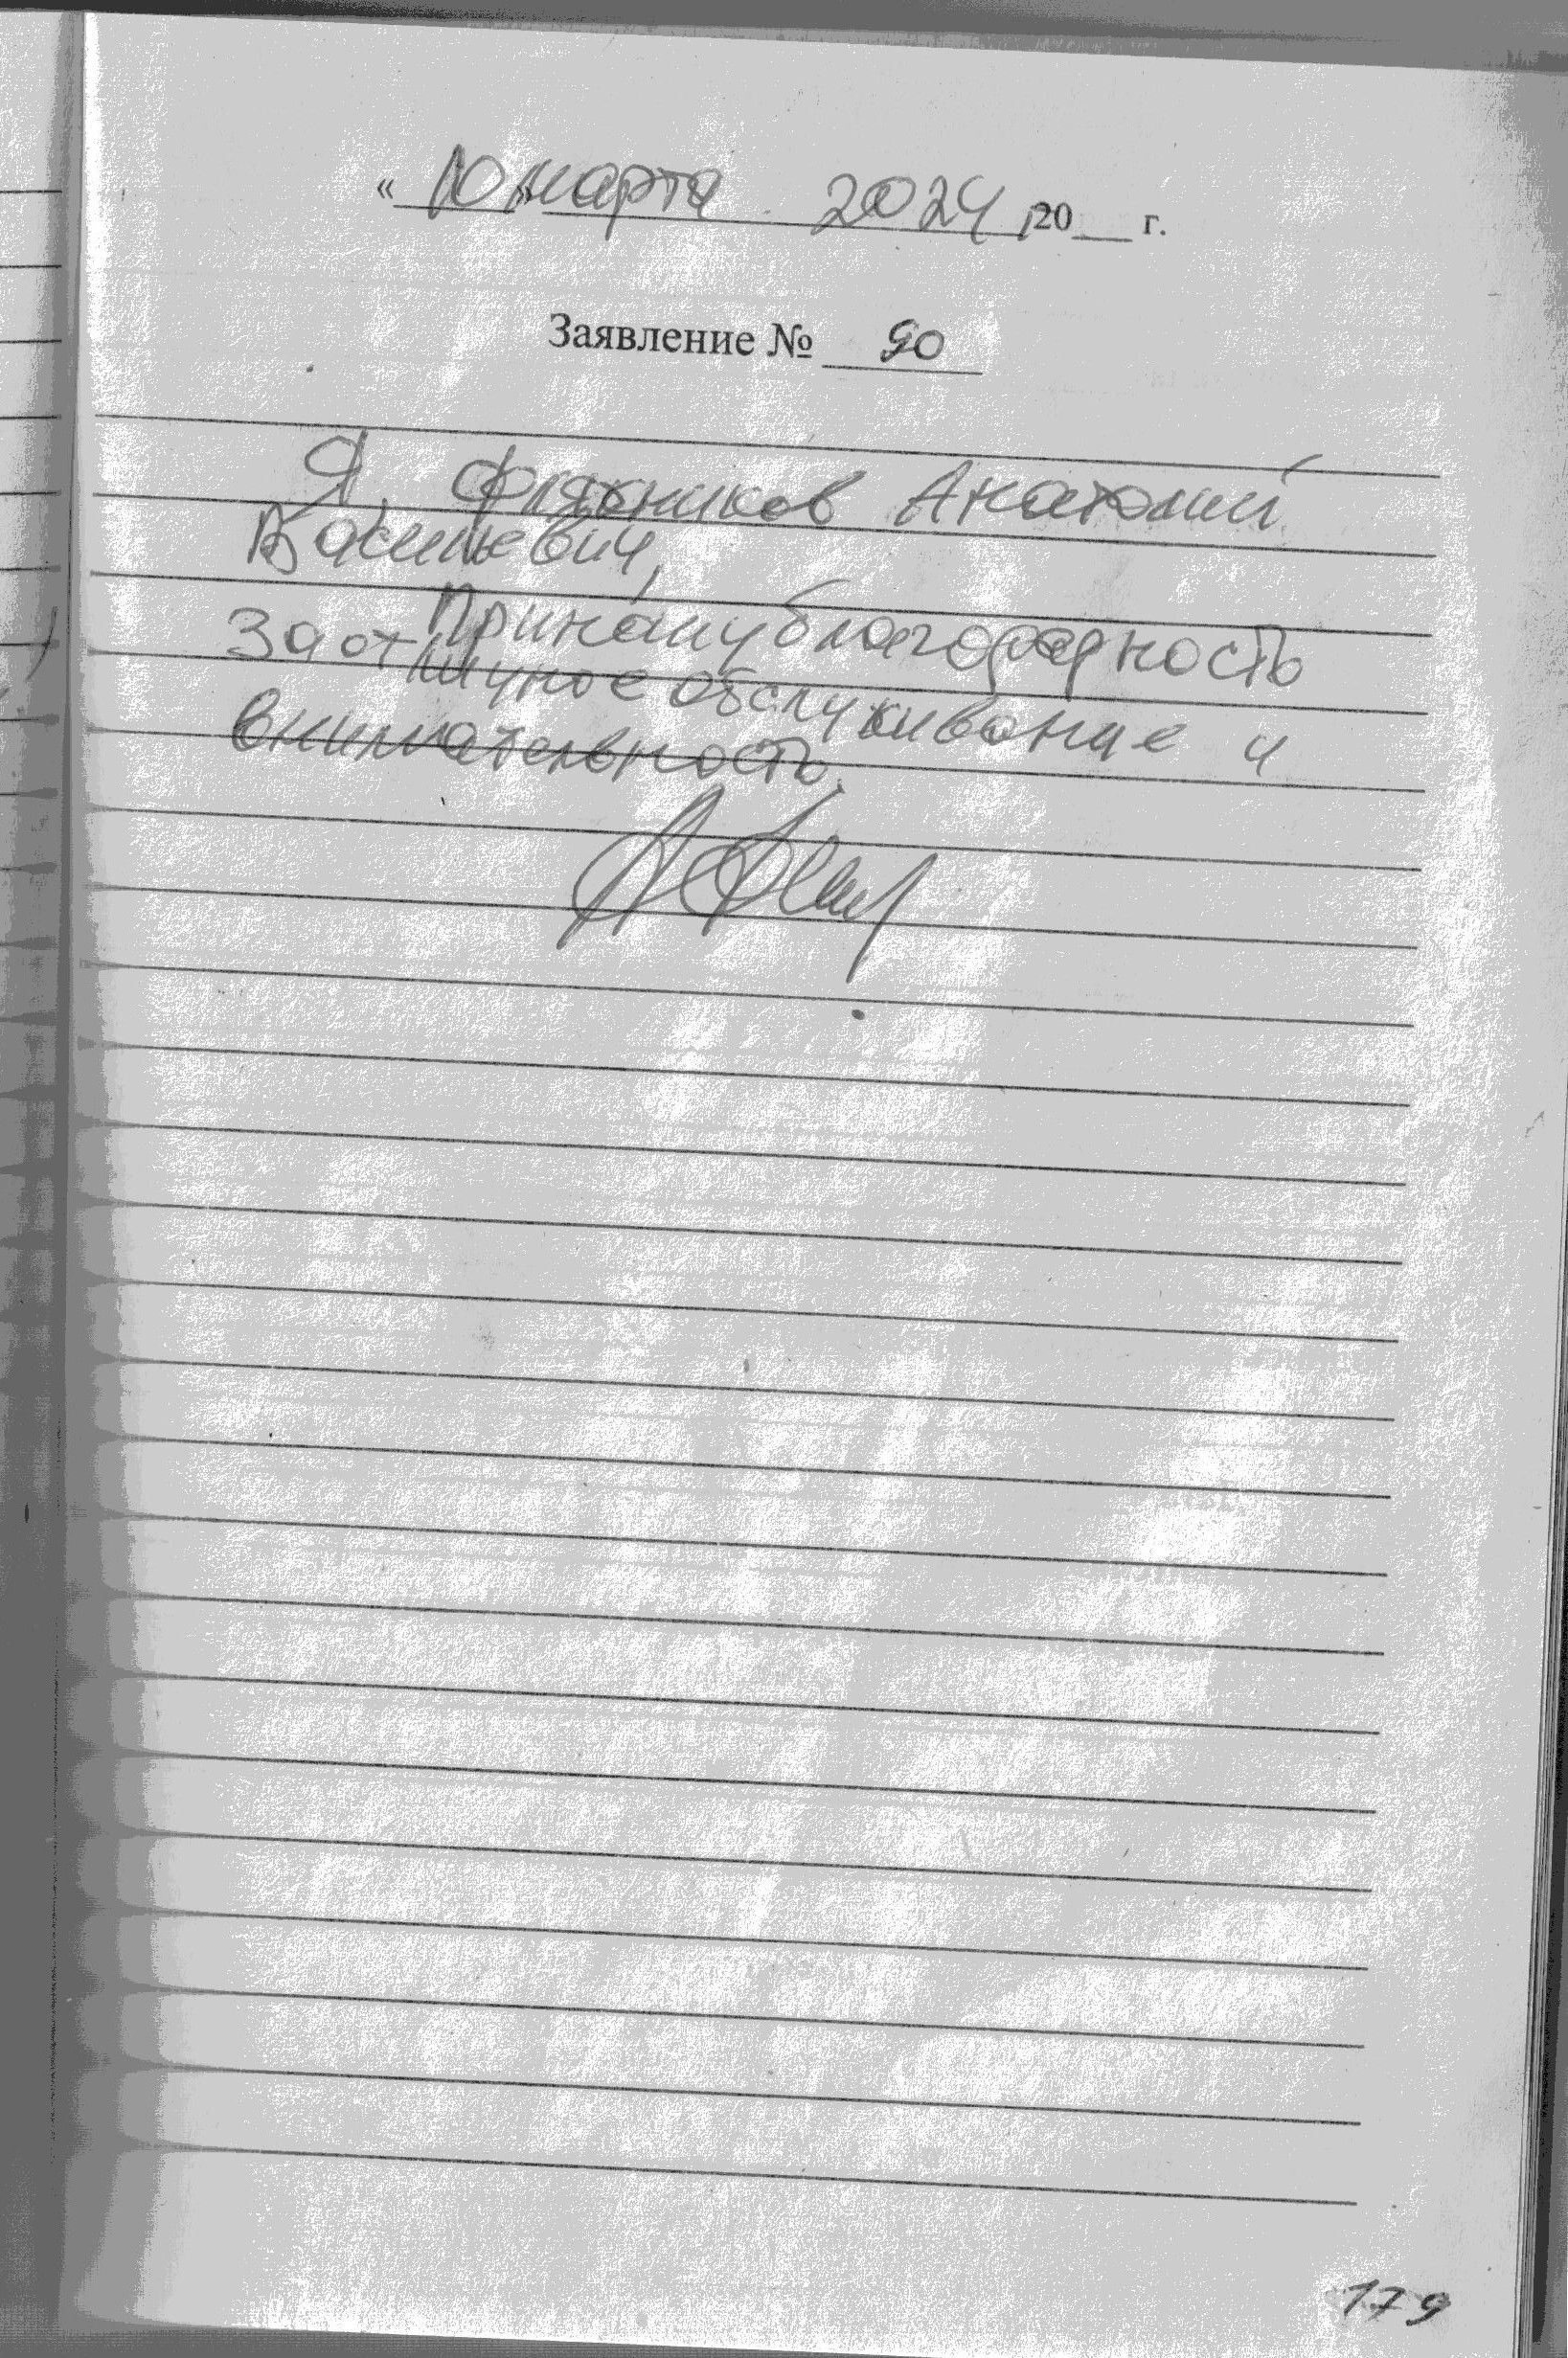 « 10 » марта 2024, 20___ г.
Заявление № 90
Я, Анатолий
Васильевич,
Приношу благодарность
За отличное обслуживание и
внимательность.
179